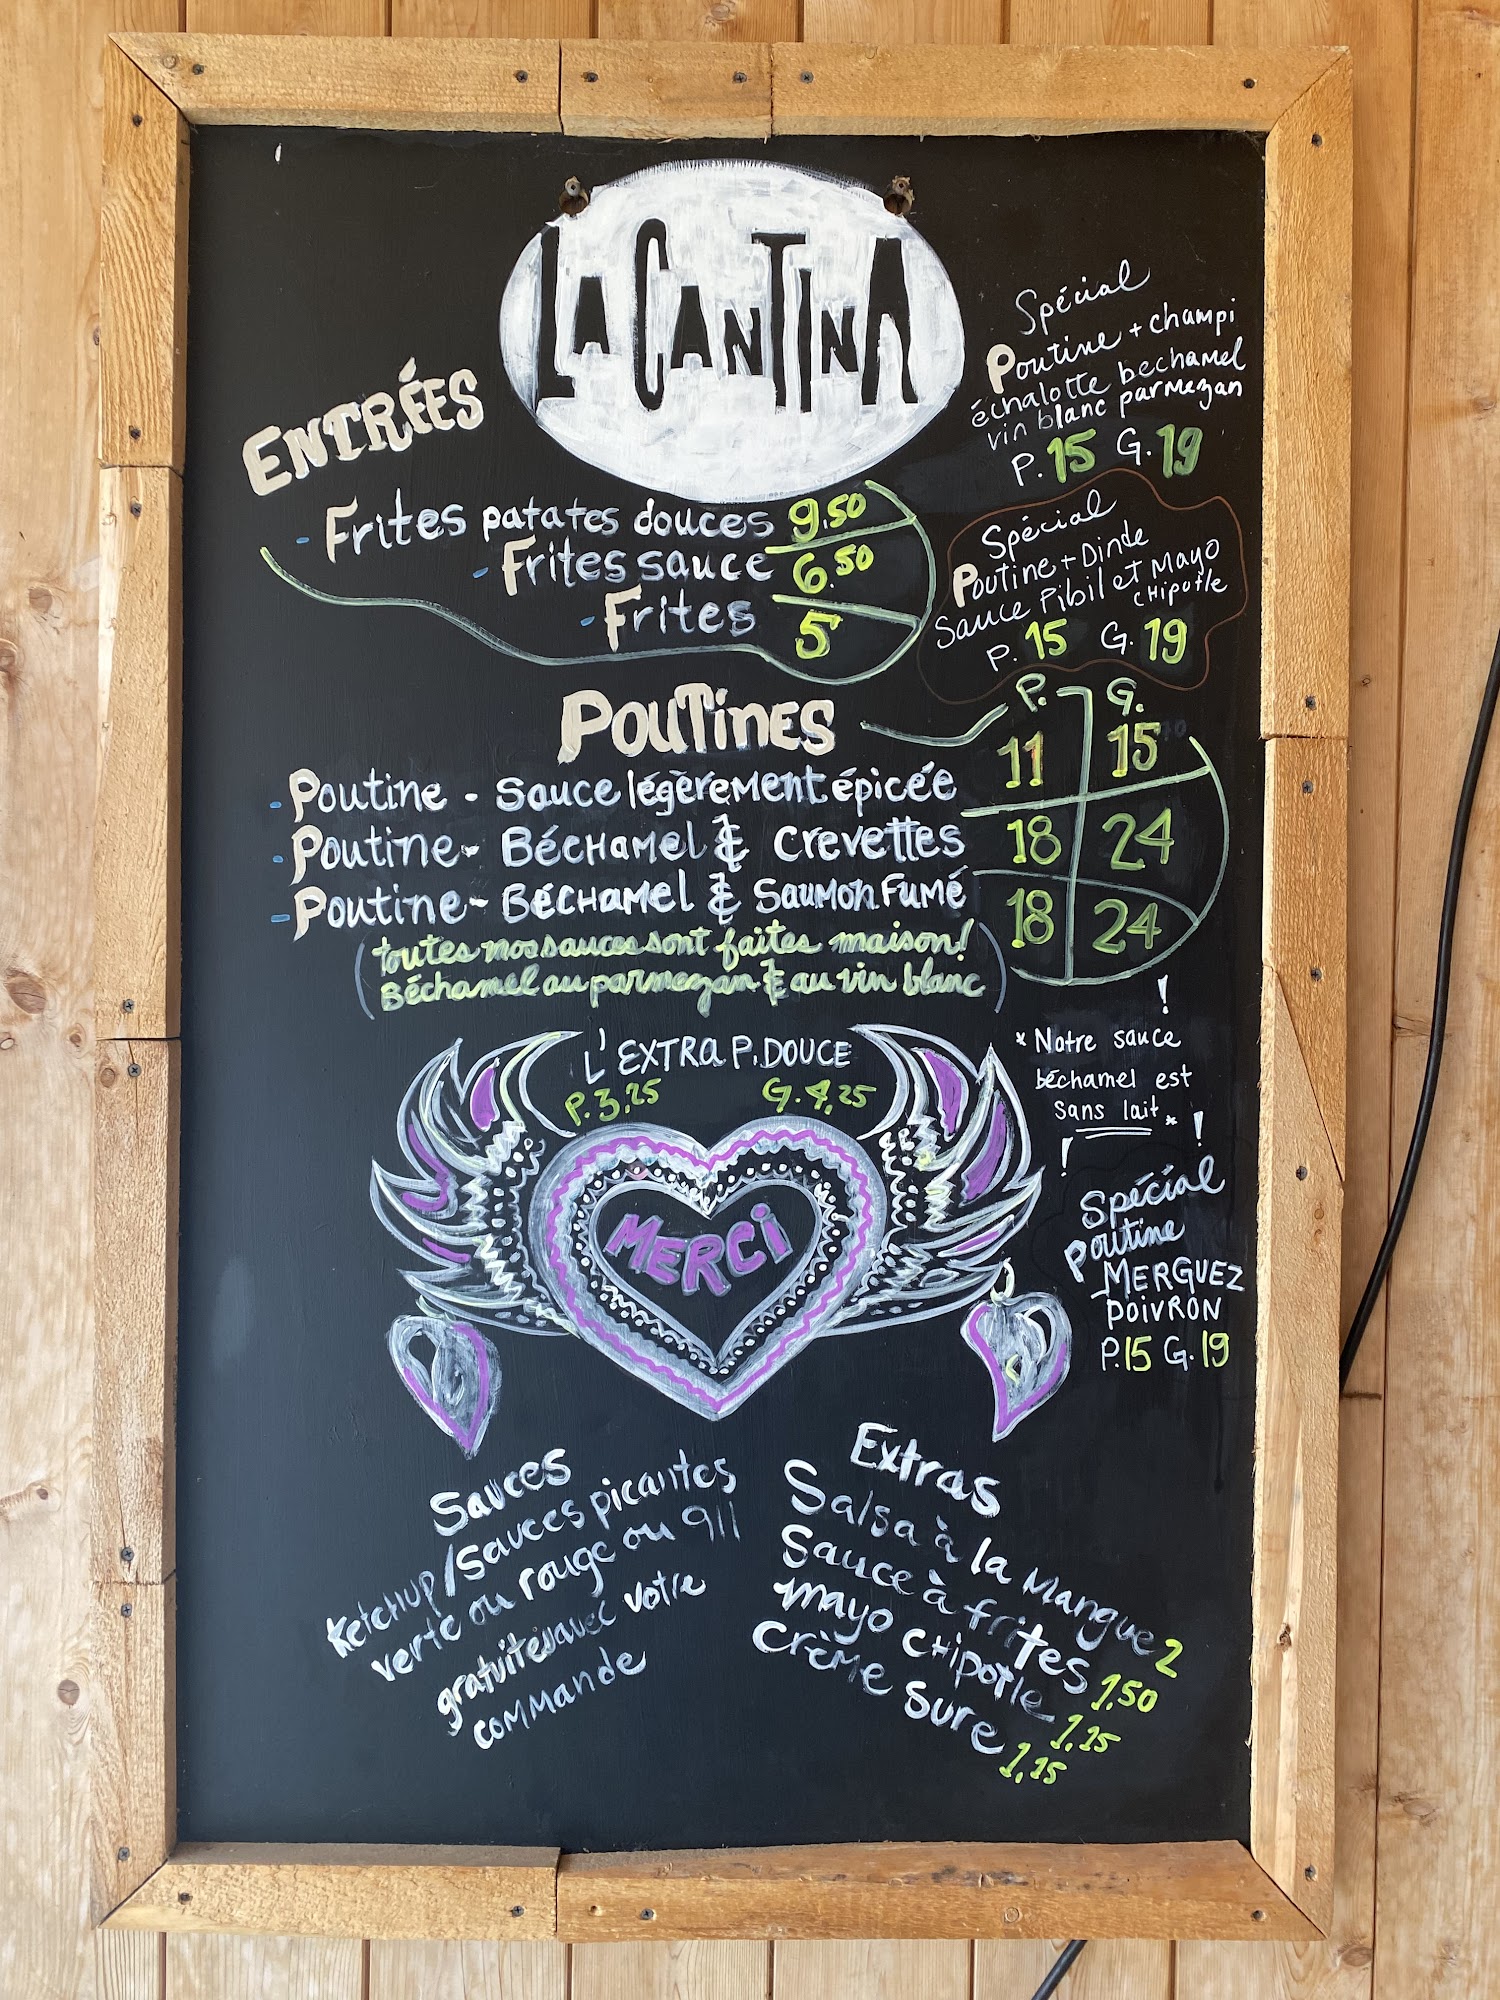 LA CANTINA
ENTRÉES
- Frites patates douces 9.50
- Frites sauce 6.50
- Frites 5
Spécial
Poutine + champi
échalotte bechamel
vin blanc parmezan
P. 15 G. 19
Spécial
Poutine + Dinde
Sauce Pibil et Mayo
CHipotle
P. 15 G. 19
POUTINES P. G.
- Poutine - Sauce légèrement épicée 11 15
- Poutine - Béchamel & Crevettes 18 24
- Poutine - Béchamel & Saumon Fumé 18 24
(toutes nos sauces sont faites maison!
Béchamel au parmezan & au vin blanc)
L'EXTRA P. DOUCE
P. 3,25 G. 4,25
!
* Notre sauce
béchamel est
sans lait *
! !
MERCI
Spécial
Poutine
MERGUEZ
POIVRON
P. 15 G. 19
Sauces
Ketchup/Sauces picantes
verte ou rouge ou 911
gratuites avec votre
commande
Extras
Salsa à la Mangue 2
Sauce à frites 1.50
Mayo CHipotle
Crème sure